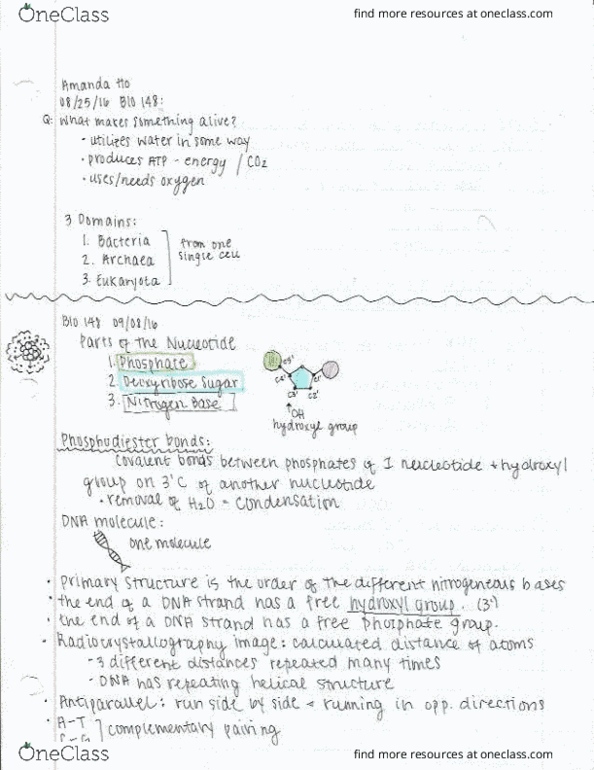 OneClass
find more resources at oneclass.com
Amanda Ho
08/25/16 BIO 148:
Q: What makes something alive?
• utilizes water in some way
• produces ATP - energy / CO2
• uses/needs oxygen
3 Domains:
1. Bacteria
2. Archaea
3. Eukaryota
from one
single cell
BIO 148 09/08/16
Parts of the Nucleotide
1. Phosphate
2. Deoxyribose Sugar
3. Nitrogen Base
C5'
C4'
C1'
C3' C2'
OH
hydroxyl group
Phosphodiester bonds:
covalent bonds between phosphates of 1 nucleotide + hydroxyl
group on 3'C of another nucleotide
• removal of H2O = condensation
DNA molecule:
one molecule
• primary structure is the order of the different nitrogeneous bases
• the end of a DNA strand has a free hydroxyl group. (3')
• the end of a DNA strand has a free phosphate group.
• Radiocrystallography image: calculated distance of atoms
- 3 different distances repeated many times
- DNA has repeating helical structure
• Antiparallel: run side by side + running in opp. directions
• A-T
C-G
complementary pairing
OneClass
find more resources at oneclass.com